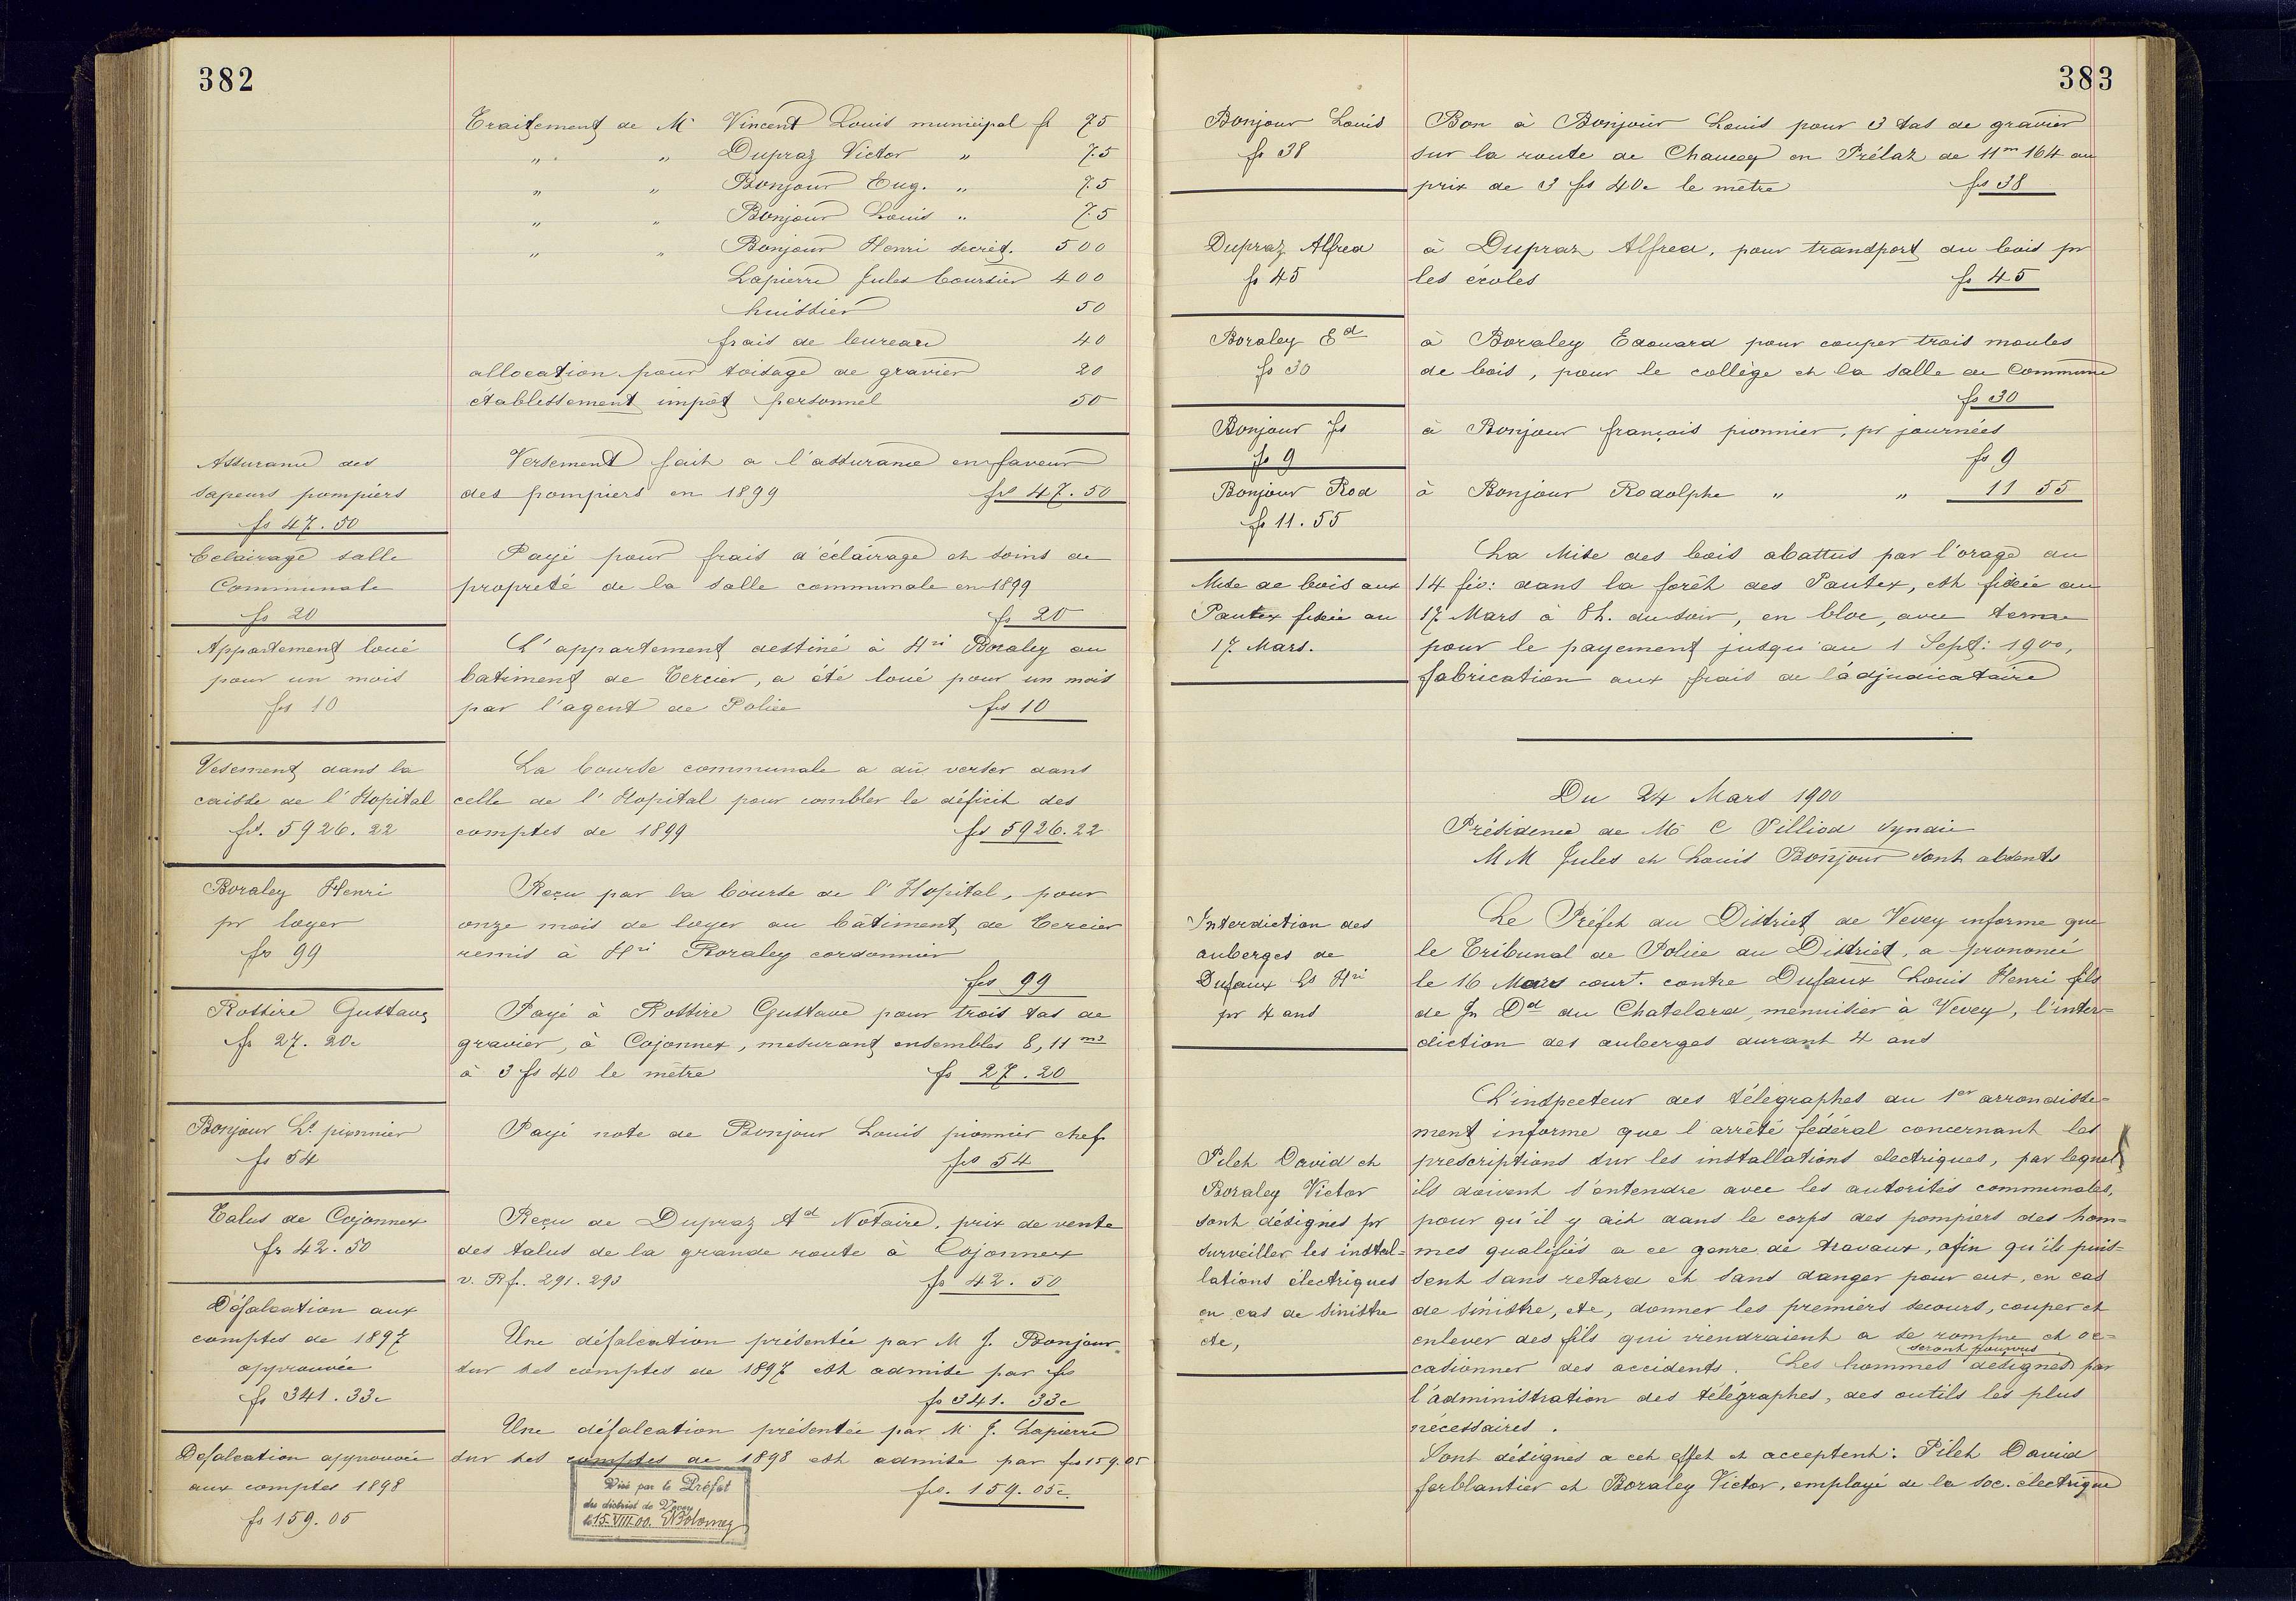 382
Traitement de Mr Vincent Louis municipal fr 75
„ „ Dupraz Victor „ 75
„ „ Bonjour Eug. „ 75
„ „ Bonjour Louis „ 75
„ „ Bonjour Henri secrét. 500
Lapierre Jules boursier 400
huissier 50
frais de bureau 40
allocation pour toisage de gravier 20
établissement impôt personnel 50
Assurance des
sapeurs pompiers
fs 47.50
Versement fait a l'assurance en faveur
des pompiers en 1899 frs 47.50
Eclairage salle
Communale
fs 20
Payé pour frais d'éclairage et soins de
propreté de la salle communale en 1899
fs 20
Appartement loué
pour un mois
frs 10
L'appartement destiné à Hri Boraley au
batiment de Cercier, a été loué pour un mois
par l'agent de Police frs 10
Vesement dans la
caisse de l'Hopital
frs. 5926.22
La bourse communale a dû verser dans
celle de l'Hopital pour combler le déficit des
comptes de 1899 frs 5926.22
Boraley Henri
pr loyer
frs 99
Reçu par la bourse de l'Hopital, pour
onze mois de loyer au bâtiment de Cercier
remis à Hri Boraley cordonnier
frs 99
Rossire Gustave
fr 27. 20c
Payé à Rossire Gustave pour trois tas de
gravier, à Cojonnex, mesurant ensembles 8,11 m3
à 3 fs 40 le mètre fs 27.20
Bonjour Ls pionnier
fs 54
Payé note de Bonjour Louis pionnier chef
frs 54
Talus de Cojonnex
fr 42.50
Reçu de Dupraz Ad Notaire, prix de vente
des talus de la grande route à Cojonnex
v. Rf. 291.293 fs 42.50
Défalcation aux
comptes de 1897
approuvée
fs 341.33c
Une défalcation présentée par M J. Bonjour
sur ses comptes de 1897 est admise par fs
fs 341. 33c
Defalcation approuvée
aux comptes 1898
fs 159.05
Une défalcation présentée par Mr J. Lapierre
sur ses comptes de 1898 est admise par fs 159.05
frs. 159.05c.
Visé par le Préfet
du district de Vevey
le 15-VIII-00.
383
Bonjour Louis
fs 38
Bon à Bonjour Louis pour 3 tas de gravier
sur la route de Chaucey en Prélaz de 11m 164 au
prix de 3 fs 40c le mètre frs 38
Dupraz Alfred
fs 45
à Dupraz Alfred, pour transport du bois pr
les écoles fs 45
Boraley Ed
fs 30
à Boraley Edouard pour couper trois moules
de bois, pour le collège et la salle de Commune
fs 30
Bonjour fs
fs 9
à Bonjour françois pionnier, pr journées
fs 9
Bonjour Rod
fs 11.55
à Bonjour Rodolphe „ „ 11 55
Mise de bois aux
Pautex fixée au
17 Mars.
La Mise des bois abattus par l'orage du
14 fév: dans la forêt des Pautex, est fixée au
17 Mars à 8h. du soir, en bloc, avec terme
pour le payement jusqu'au 1 Sept: 1900,
fabrication aux frais de l'adjudicataire
Du 24 Mars 1900
Présidence de Mr C Pilliod syndic
MM Jules et Louis Bonjour sont absents
Interdiction des
auberges de
Dufaux Ls Hri
pr 4 ans
Le Préfet du District de Vevey informe que
le Tribunal de Police du District, a prononcé
le 16 Mars court. contre Dufaux Louis Henri fils
de Jn Dd du Chatelard, menuisier à Vevey, l'inter=
diction des auberges durant 4 ans
Pilet David et
Boraley Victor
sont désignés pr
surveiller les instal=
lations électriques
en cas de sinistre
etc,
L'inspecteur des télégraphes du 1er arrondisse=
ment informe que l'arrêté fédéral concernant les
prescriptions sur les installations electriques, par lequel
ils doivent s'entendre avec les autorités communales,
pour qu'il y ait dans le corps des pompiers des hom=
mes qualifiés a ce genre de travaux, afin qu'ils puis=
sent sans retard et sans danger pour eux, en cas
de sinistre, etc, donner les premiers secours, couper et
enlever des fils qui viendraient a se rompre et oc=
casionner des accidents. Les hommes désignés seront pourvus par
l'administration des télégraphes, des outils les plus
nécessaires.
Sont désignés a cet effet et acceptent: Pilet David
ferblantier et Boraley Victor, employé de la soc. électrique